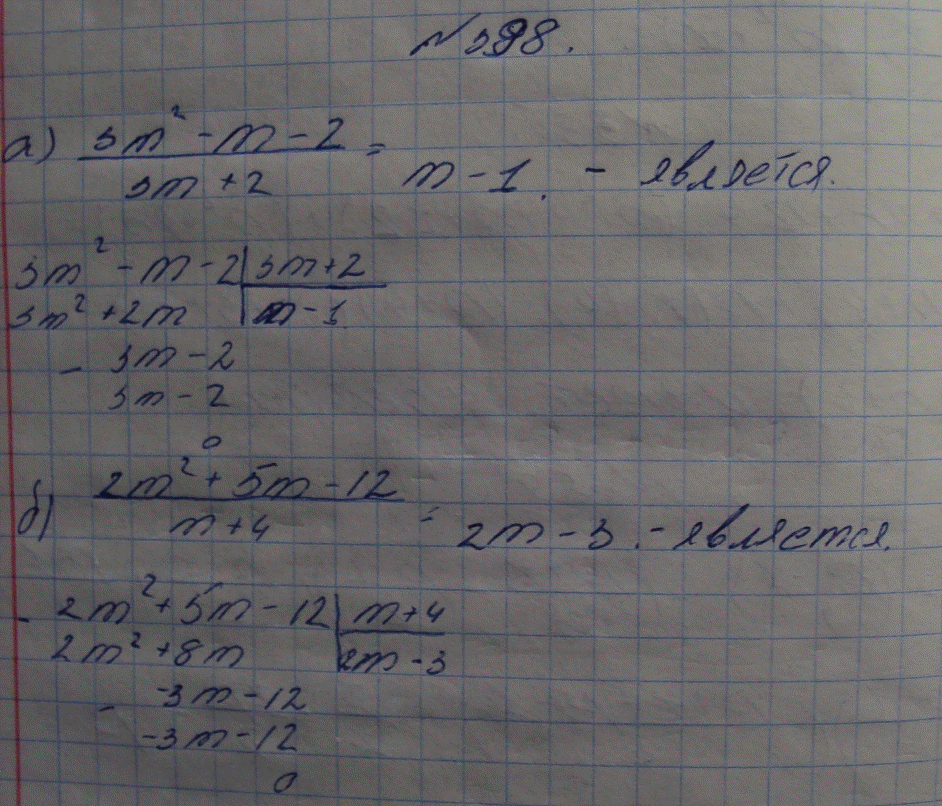 №398.
а) 3m² - m - 2 / 3m + 2 = m - 1. - является.
3m² - m - 2 | 3m + 2
3m² + 2m | m - 1
- 3m - 2
3m - 2
0
б) 2m² + 5m - 12 / m + 4 = 2m - 3. - является.
- 2m² + 5m - 12 | m + 4
2m² + 8m | 2m - 3
- -3m - 12
-3m - 12
0